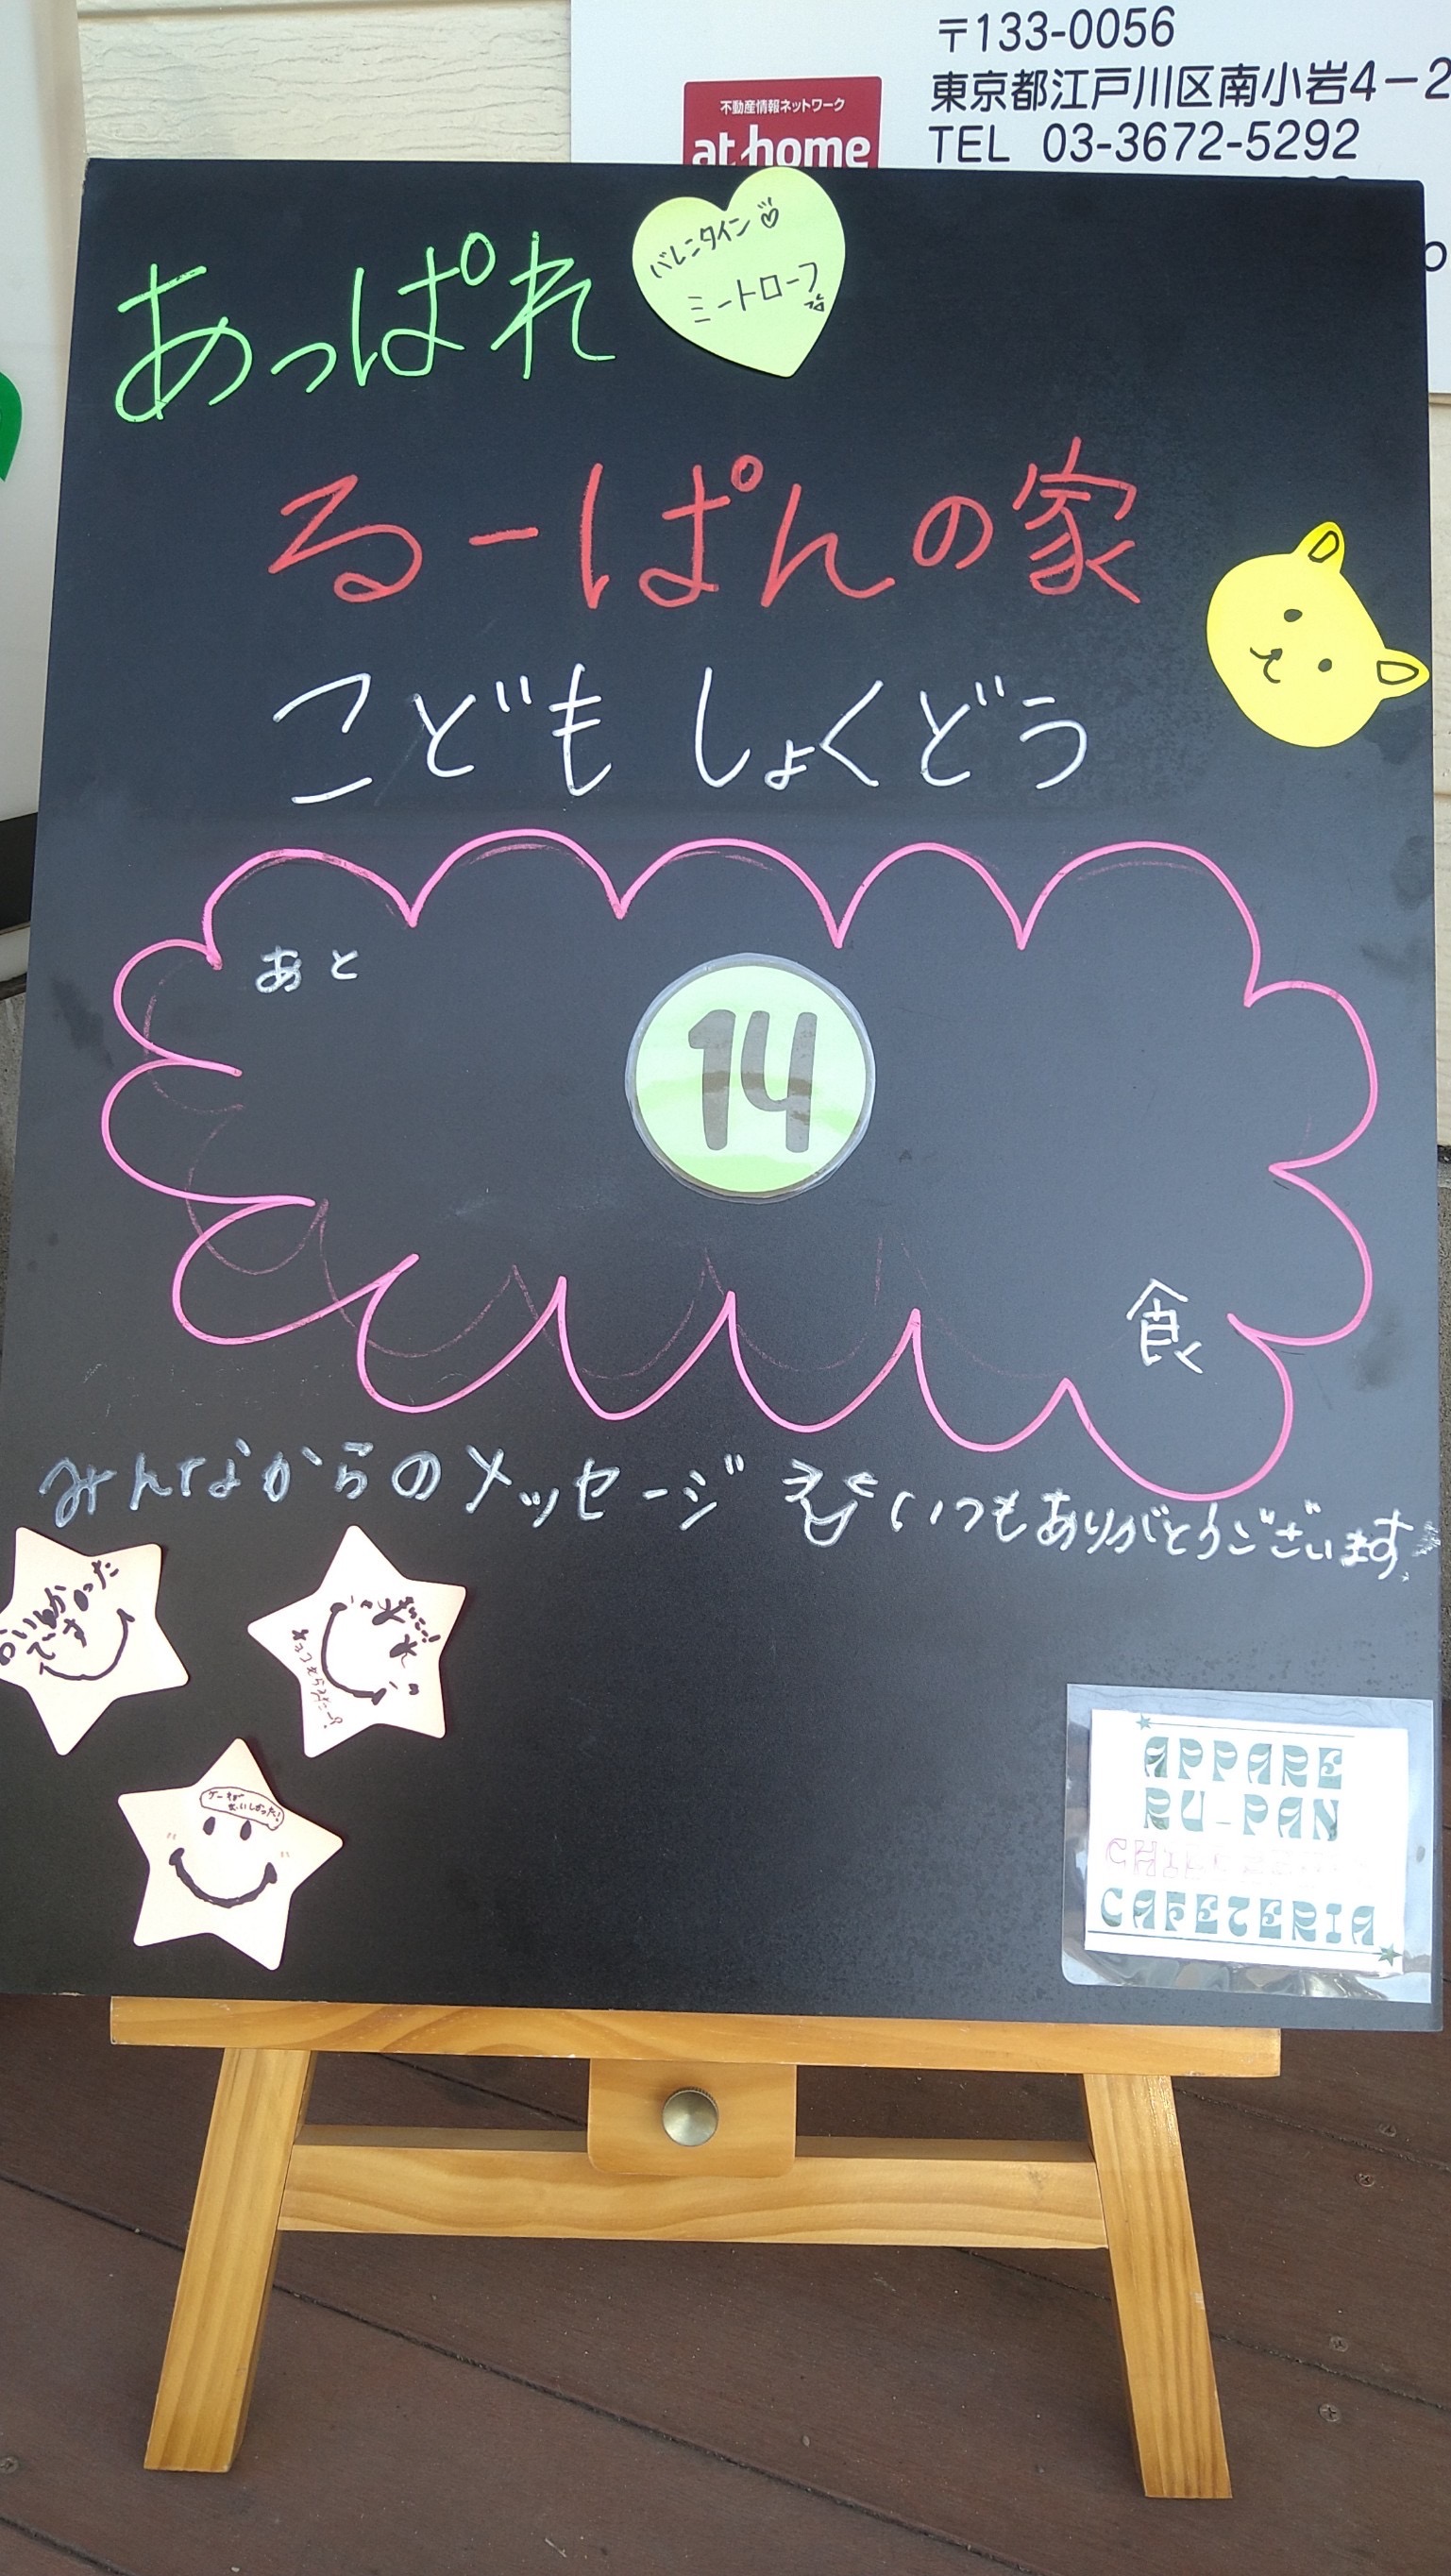 〒133-0056
東京都江戸川区南小岩4-2
TEL 03-3672-5292
不動産情報ネットワーク
at home
あっぱれ
バレンタイン♡
ミートローフ
るーぱんの家
こども しょくどう
あと
14
食
みんなからのメッセージ いつもありがとうございます
おいしかった
です
ケーキが
おいしかった!
APPARE
RU-PAN
CAFETERIA